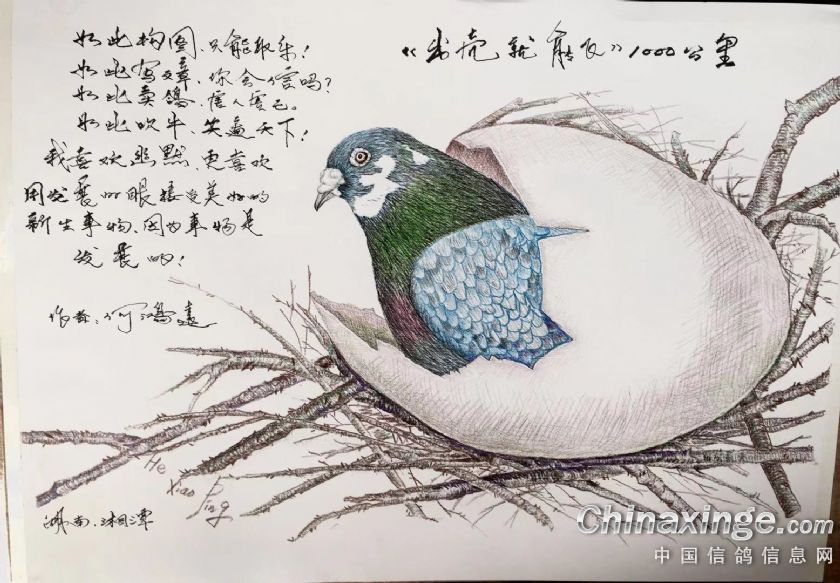 《出壳就能飞》1000公里
如此构图、只能取乐!
如此写文章、你会信吗?
如此卖鸽、害人害己。
如此吹牛、笑遍天下!
我喜欢幽默、更喜欢
用发展的眼接受美好的
新生事物、因为事物是
发展的!
作者:何鸿远
He
Xiao
Ping
湖南.湘潭
Chinaxinge.com
中国信鸽信息网